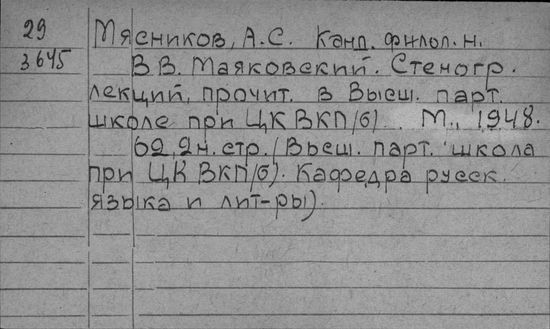 29 Мясников, А.С. Канд. филол. н.
3645 В.В. Маяковский. Стеногр.
лекций, прочит. в Высш. парт.
школе при ЦК ВКП/б). М., 1948.
62, 2 н. стр. (Высш. парт. школа
при ЦК ВКП/б). Кафедра русск.
языка и лит-ры).